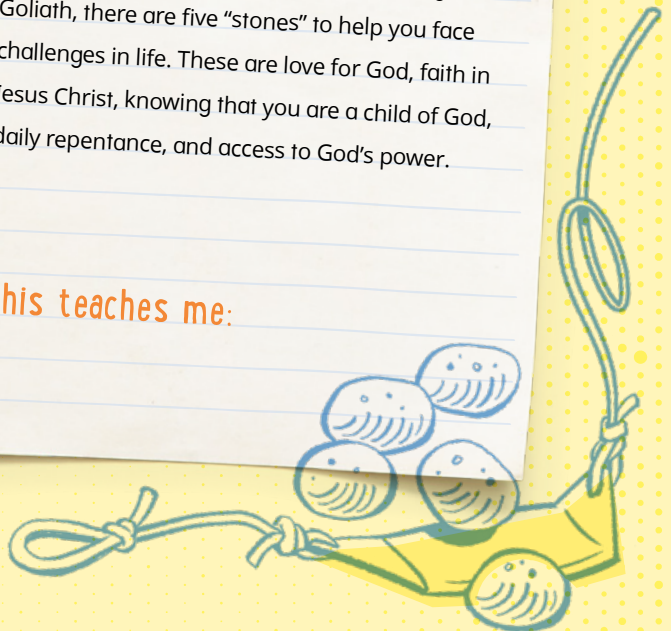 Goliath, there are five “stones” to help you face
challenges in life. These are love for God, faith in
Jesus Christ, knowing that you are a child of God,
daily repentance, and access to God’s power.
his teaches me: